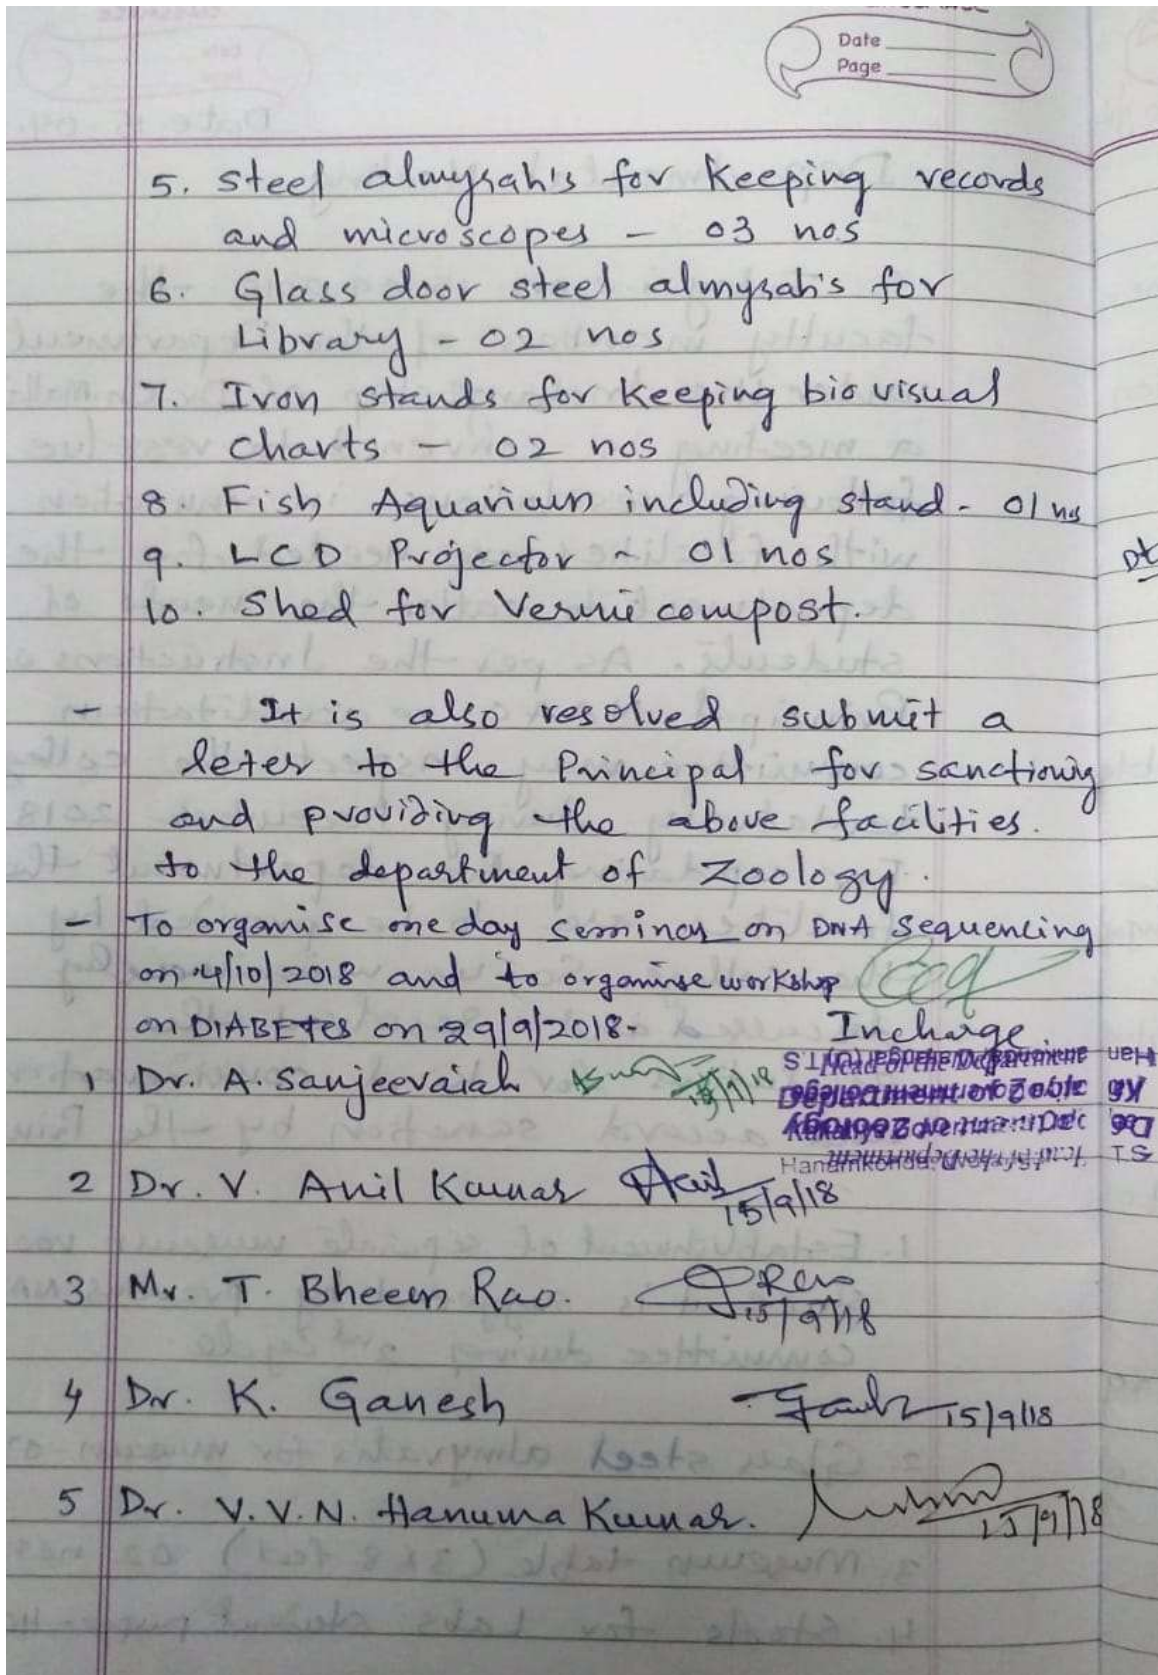 Date
Page
5. Steel almyrah's for Keeping records
and microscopes - 03 nos
6. Glass door steel almyrah's for
Library - 02 nos
7. Iron stands for Keeping bio visual
Charts - 02 nos
8. Fish Aquarium including stand - 01 nos
9. LCD Projector - 01 nos
Dt
10. Shed for Vermi compost.
- It is also resolved submit a
leter to the Principal for sanctioning
and providing the above facilities.
to the department of Zoology.
- To organise one day Seminar on DNA Sequencing
on 4/10/2018 and to organise workshop
on DIABEtes on 29/9/2018-
Incharge
Head of the Department
Department of Zoology
1 Dr. A. Sanjeevaiah
2 Dr. V. Anil Kumar
15/9/18
3 Mr. T. Bheem Rao. Rao
15/9/18
4 Dr. K. Ganesh 15/9/18
5 Dr. V.V.N. Hanuma Kumar.
15/9/18